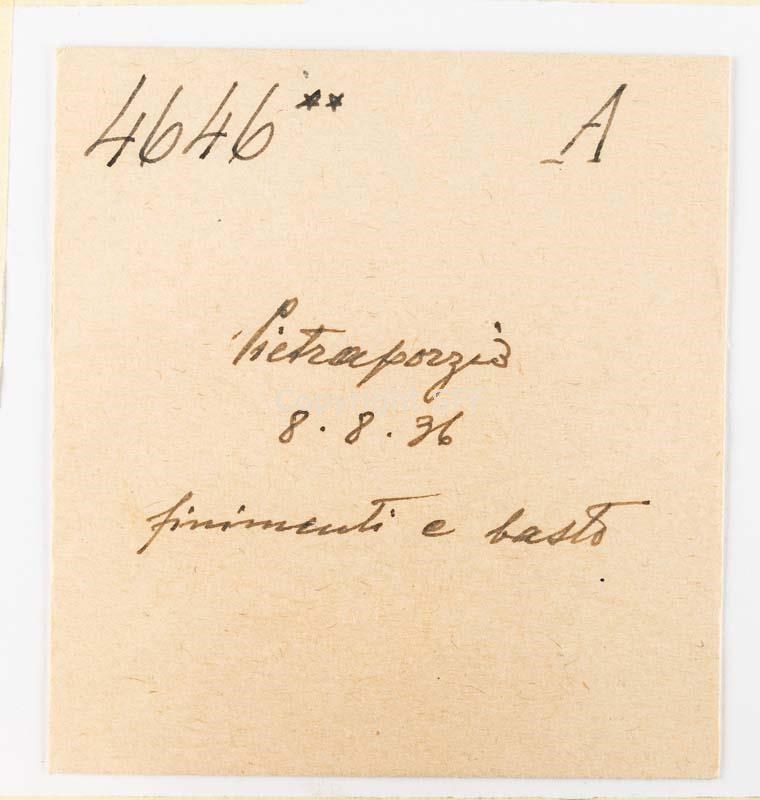 4646** A
Pietraporzio
8.8.36
finimenti e basto